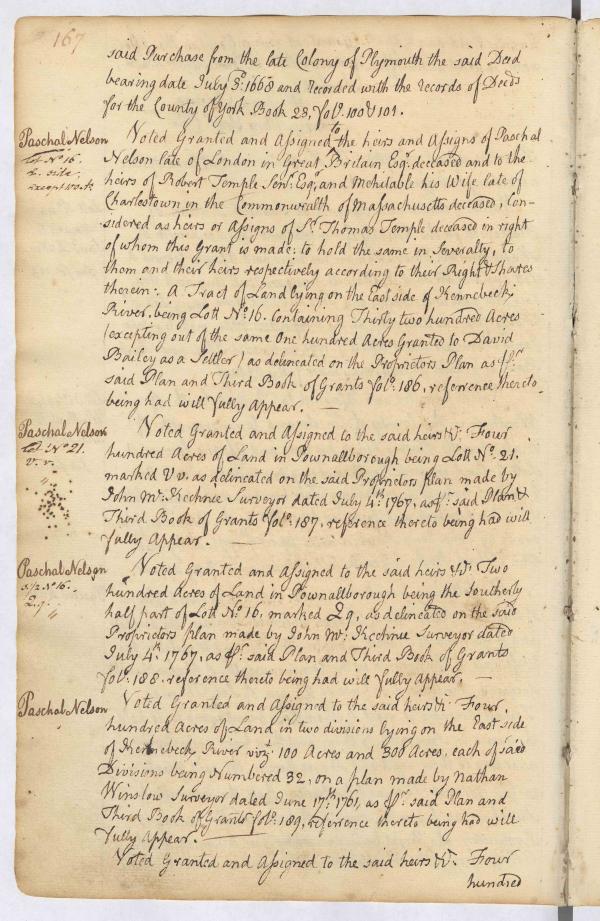 167
said Purchase from the late Colony of Plymouth the said Deed
bearing date July 8th: 1668 and recorded with the records of Deeds
for the County of York Book 28, fol: 100 & 101.
Paschal Nelson
Lot No 16.
E. side
except 100 A
Voted Granted and Assigned to the heirs and Assigns of Paschal
Nelson late of London in Great Britain Esqr. deceased and to the
heirs of Robert Temple Senr: Esqr, and Mehitable his Wife late of
Charlestown in the Commonwealth of Massachusetts deceased, Con-
sidered as heirs or Assigns of Sr. Thomas Temple deceased in right
of whom this Grant is made: to hold the same in Severalty, to
them and their heirs respectively according to their Right & Shares
therein: A Tract of Land lying on the East side of Kennebeck
River, being Lott No. 16. Containing Thirty two hundred Acres
(excepting out of the same One hundred Acres Granted to David
Bailey as a Settler) as delineated on the Proprietors Plan as pr.
said Plan and Third Book of Grants fol: 186, reference thereto
being had will fully Appear. —
Paschal Nelson
Lot No 21.
V. v.
Voted Granted and Assigned to the said heirs &c: Four
hundred Acres of Land in Pownallborough being Lott No. 21.
marked V v. as delineated on the said Proprietors plan made by
John Mc. Kechnie Surveyor dated July 4th. 1767, as pr. said Plan &
Third Book of Grants fol: 187, reference thereto being had will
fully Appear. —
Paschal Nelson
S 1/2 No 16.
Q q.
Voted Granted and Assigned to the said heirs &c: Two
hundred Acres of Land in Pownallborough being the Southerly
half part of Lott No. 16, marked Q q, as delineated on the said
Proprietors plan made by John Mc. Kechnie Surveyor dated
July 4th. 1767, as pr. said Plan and Third Book of Grants
fol: 188. reference thereto being had will fully Appear. —
Paschal Nelson
Voted Granted and Assigned to the said heirs &c: Four
hundred Acres of Land in two divisions lying on the East side
of Kennebeck River vizt. 100 Acres and 300 Acres, each of said
Divisions being Numbered 32, on a plan made by Nathan
Winslow Surveyor dated June 17th. 1761, as pr. said Plan and
Third Book of Grants fol: 189, reference thereto being had will
fully Appear. —
Voted Granted and Assigned to the said heirs &c. Four
hundred